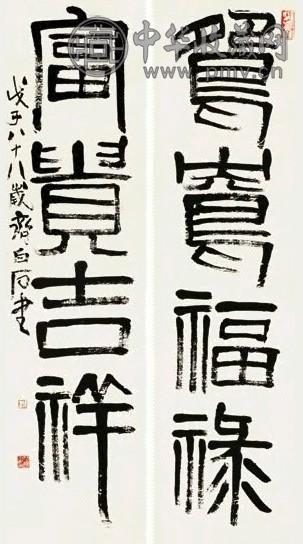 中华收藏网
www.pmv.cn
福祿
富貴吉祥
戊子八十八歲齊白石書